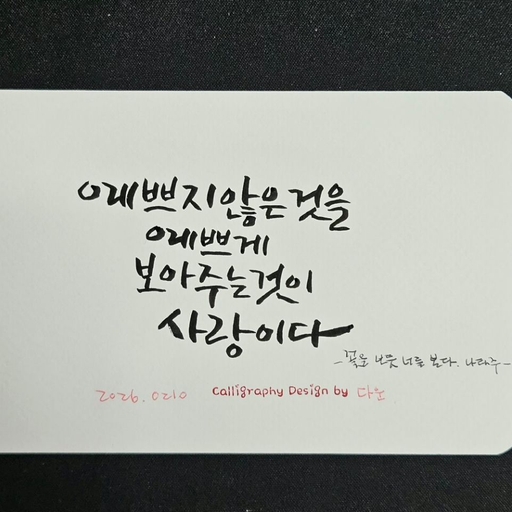 예쁘지않은것을
예쁘게
보아주는것이
사랑이다
-꽃을 보듯 너를 본다. 나태주-
2026.0210 Calligraphy Design by 다운